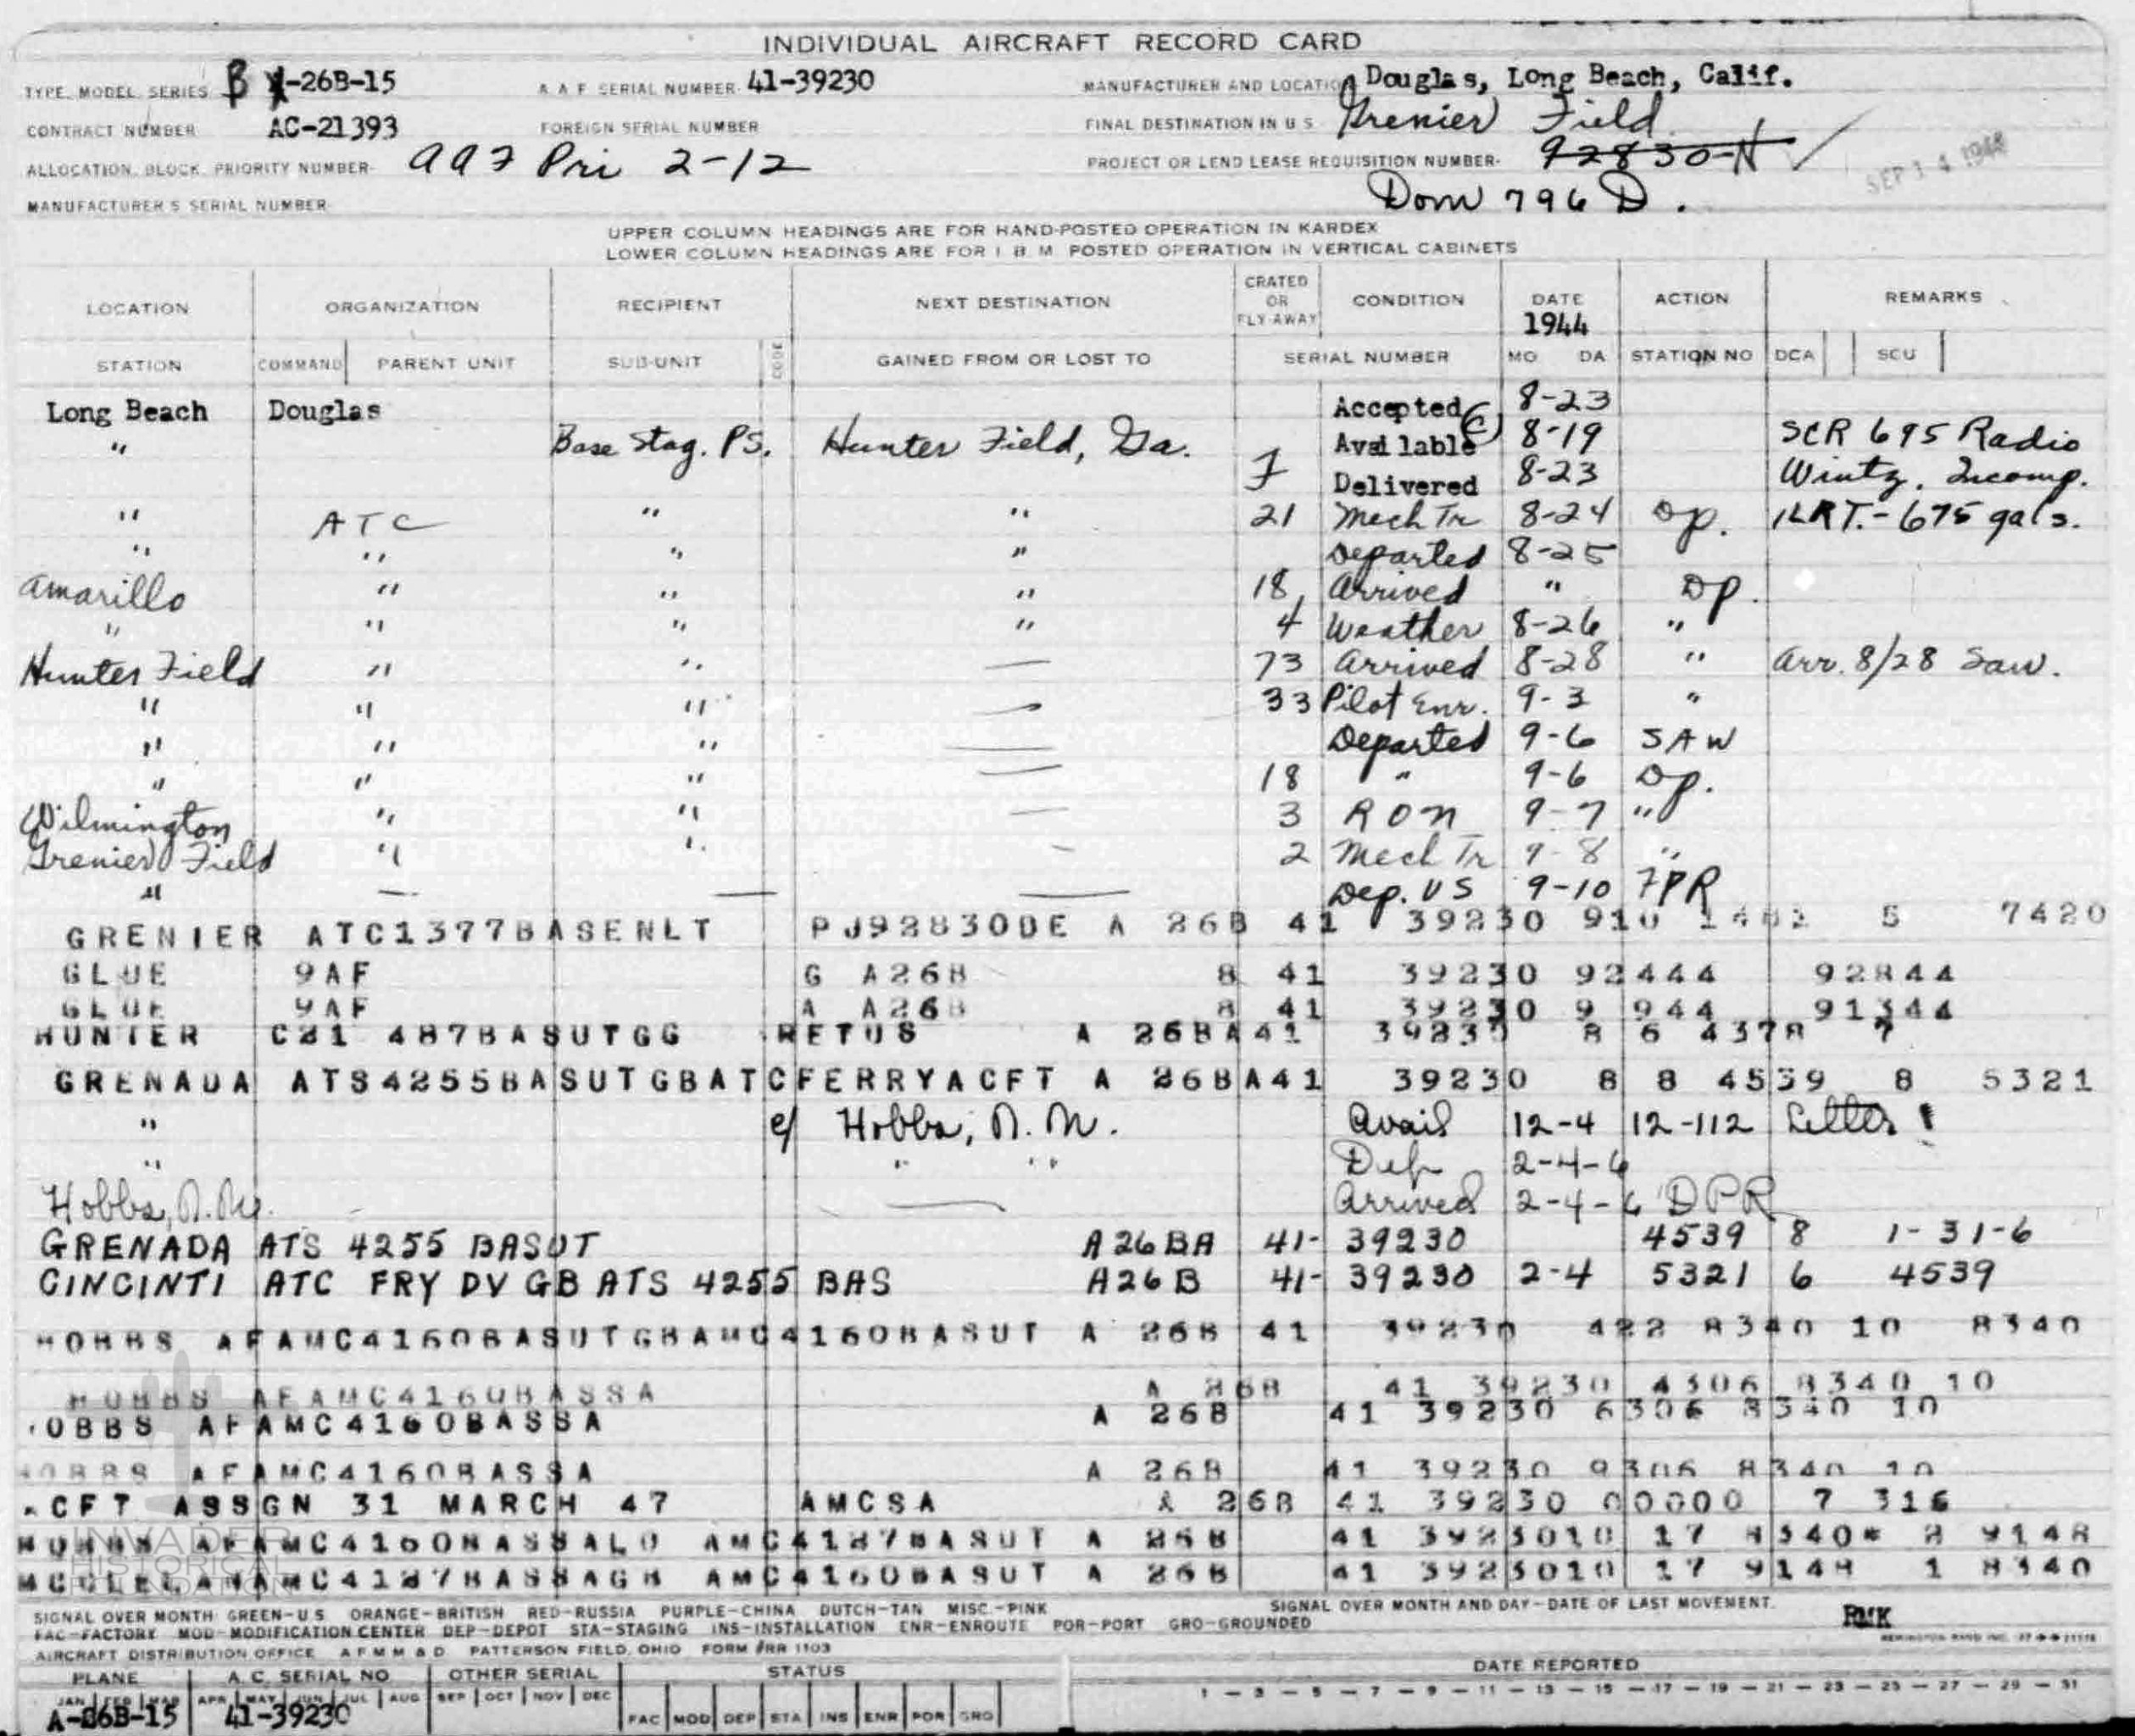 INDIVIDUAL AIRCRAFT RECORD CARD
TYPE, MODEL, SERIES B -26B-15 A A F SERIAL NUMBER 41-39230 MANUFACTURER AND LOCATION Douglas, Long Beach, Calif.
CONTRACT NUMBER AC-21393 FOREIGN SERIAL NUMBER FINAL DESTINATION IN U S Grenier Field
ALLOCATION, BLOCK, PRIORITY NUMBER- AAF Pri 2-12 PROJECT OR LEND LEASE REQUISITION NUMBER- 92830-N SEP 14 1944
MANUFACTURER'S SERIAL NUMBER Dom 796 D.
UPPER COLUMN HEADINGS ARE FOR HAND-POSTED OPERATION IN KARDEX
LOWER COLUMN HEADINGS ARE FOR I B M POSTED OPERATION IN VERTICAL CABINETS
LOCATION ORGANIZATION RECIPIENT NEXT DESTINATION CRATED OR FLY-AWAY CONDITION DATE 1944 ACTION REMARKS
STATION COMMAND PARENT UNIT SUB-UNIT CODE GAINED FROM OR LOST TO SERIAL NUMBER MO DA STATION NO DCA SCU
Long Beach Douglas Accepted 8-23
" Base Stag. PS. Hunter Field, Ga. Available 8-19 SCR 695 Radio
F Delivered 8-23 Wintz. Incomp.
" ATC " " 21 Mech Tr 8-24 Dp. 1LRT.-675 gals.
" " " " Departed 8-25
Amarillo " " " 18 Arrived " Dp.
" " " " 4 Weather 8-26 "
Hunter Field " " — 73 Arrived 8-28 " Arr. 8/28 Saw.
" " " — 33 Pilot Enr. 9-3 "
" " " — Departed 9-6 SAW
" " " — 18 " 9-6 Dp.
Wilmington " " — 3 RON 9-7 "
Grenier Field " " - 2 Mech Tr 9-8 "
" — — — Dep. US 9-10 FPR
GRENIER ATC1377BASENLT PJ92830DE A 26B 41 39230 910 1481 5 7420
GLUE 9AF G A26B 8 41 39230 92444 92844
GLUE 9AF A A26B 8 41 39230 9 944 91344
HUNTER C21 487BASUTGG RETUS A 26BA41 39230 8 6 4378 7
GRENADA ATS4255BASUTGBATCFERRYACFT A 26BA41 39230 8 8 4539 8 5321
" Hobbs, N. M. Avail 12-4 12-112 Letter
" " " Dep 2-4-6
Hobbs, N.M. — Arrived 2-4-6 DPR
GRENADA ATS 4255 BASUT A26BA 41- 39230 4539 8 1-31-6
CINCINTI ATC FRY DV GB ATS 4255 BAS A26B 41- 39230 2-4 5321 6 4539
HOBBS AFAMC4160BASUTGBAMC4160BASUT A 26B 41 39230 422 8340 10 8340
HOBBS AFAMC4160BASSA A 26B 41 39230 4306 8340 10
OBBS AFAMC4160BASSA A 26B 41 39230 6306 8340 10
HOBBS AFAMC4160BASSA A 26B 41 39230 9306 8340 10
ACFT ASSGN 31 MARCH 47 AMCSA A 26B 41 39230 00000 7 316
HOBBS AFAMC4160BASSALO AMC4127BASUT A 26B 41 3923010 17 8340* 2 9148
MCCLELANAMC4127BASSAGB AMC4160BASUT A 26B 41 3923010 17 9148 1 8340
INVADER HISTORICAL
SIGNAL OVER MONTH GREEN-U S ORANGE-BRITISH RED-RUSSIA PURPLE-CHINA DUTCH-TAN MISC.-PINK SIGNAL OVER MONTH AND DAY-DATE OF LAST MOVEMENT.
FAC-FACTORY MOD-MODIFICATION CENTER DEP-DEPOT STA-STAGING INS-INSTALLATION ENR-ENROUTE POR-PORT GRO-GROUNDED RMK
AIRCRAFT DISTRIBUTION OFFICE A F M M & D PATTERSON FIELD, OHIO FORM #RR 1103
PLANE A. C. SERIAL NO OTHER SERIAL STATUS DATE REPORTED
JAN FEB MAR APR MAY JUN JUL AUG SEP OCT NOV DEC 1 - 3 - 5 - 7 - 9 - 11 - 13 - 15 - 17 - 19 - 21 - 23 - 25 - 27 - 29 - 31
A-26B-15 41-39230 FAC MOD DEP STA INS ENR POR GRO